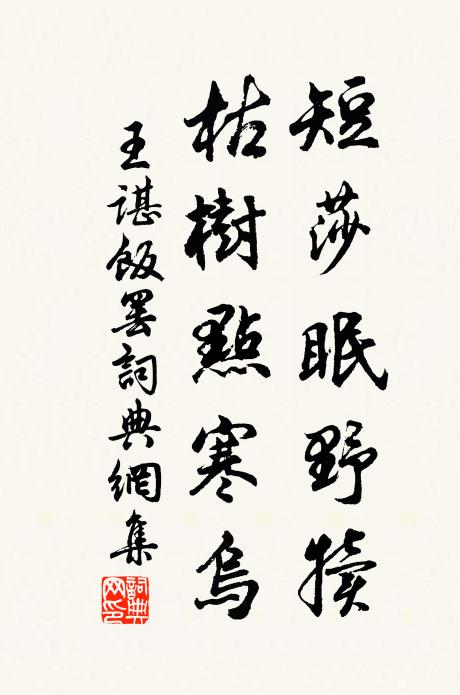 短莎眠野犢
枯樹點寒烏
王諶飯罷詞典網集
詞典網印